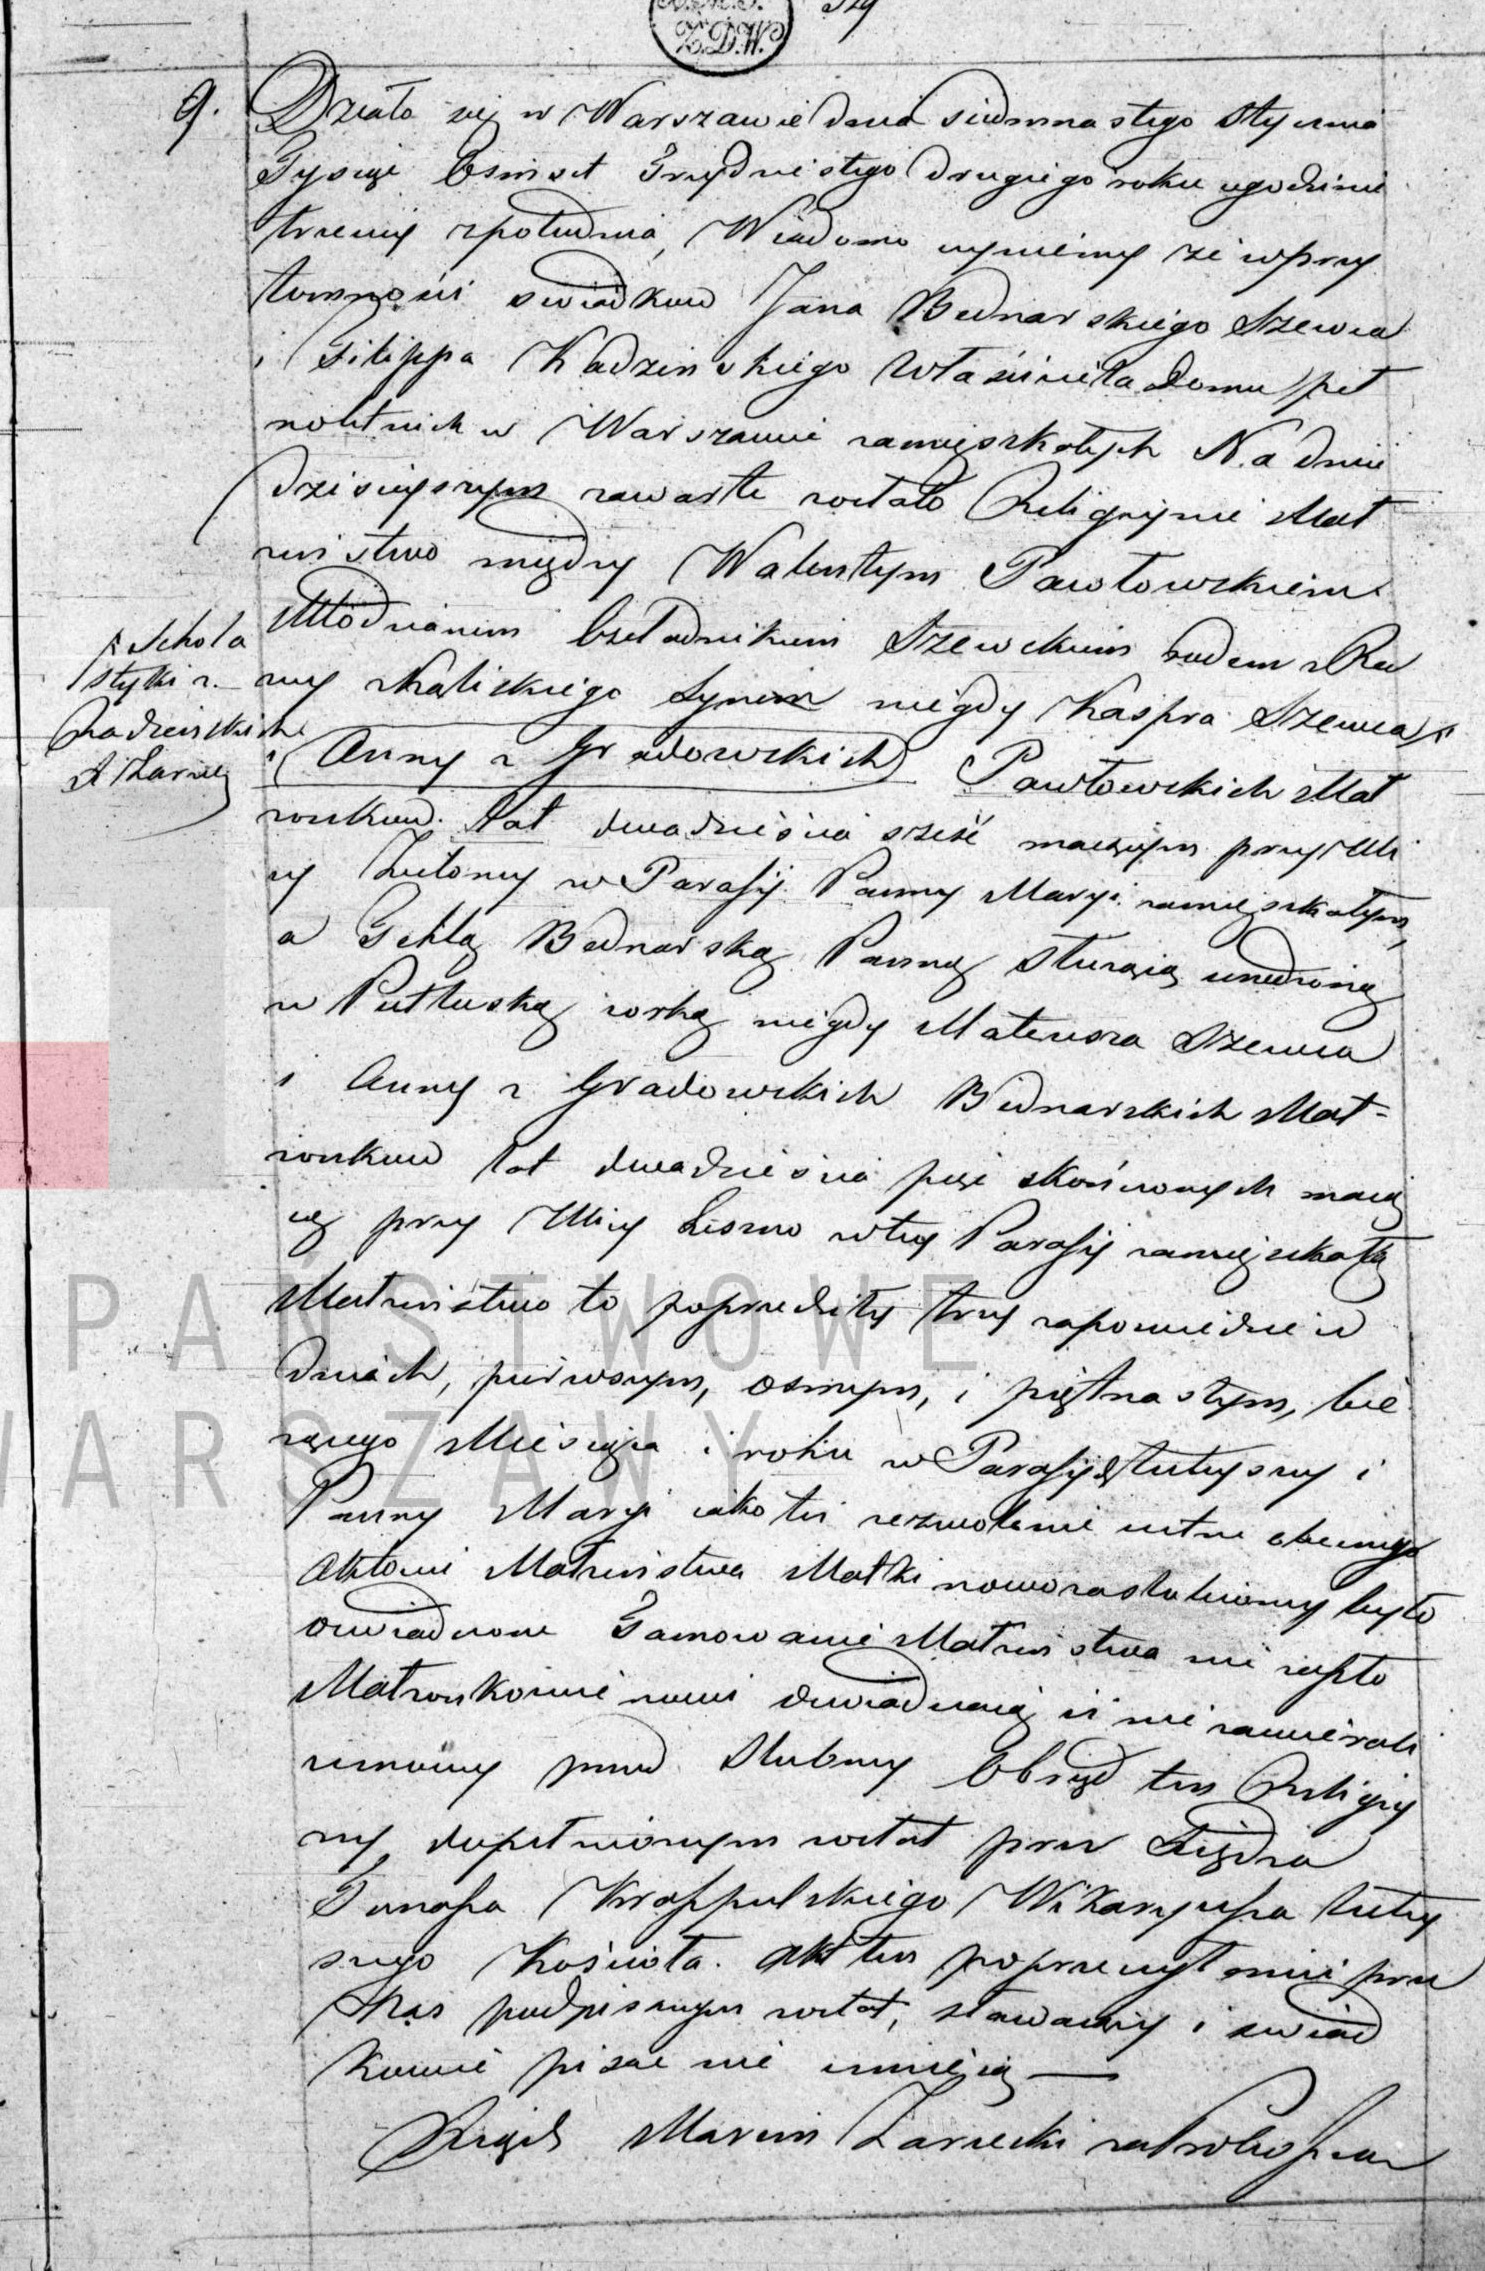 9.
Działo się w Warszawie dnia siedmnastego Stycznia
Tysiąc Osmset Trzydziestego drugiego roku o godzinie
trzeciey z południa, Wiadomo czyniemy że w przy
tomności swiadków Jana Bednarskiego Szewca
i Filippa Kadzinskiego Właściciela Domu peł
noletnich w Warszawie zamięszkałych Na dniu
dzisieyszym zawarte zostało Religiynie Mał
żenstwo między Walentym Pawłowskiem
Młodzianem Czeladnikiem Szewckim rodem z Ra
wy Kaliskiego Synem niegdy Kaspra Szewca
i Anny z Gradowskich Pawłowskich Mał
żonkow. lat dwadzieścia sześć maiącym przy Uli
cy Zieloney w Parafij Panny Maryi zamięszkałym,
a Teklą Bednarską Panną Służącą urodzoną
w Pułtusku córką niegdy Mateusza Szewca
i Anny z Gradowskich Bednarskich Mał-
żonkow lat dwadzieścia pięć skończonych maią
cą przy Ulicy Leszno w tey Parafij zamięszkałą
Małżenstwo to poprzedziły trzy zapowiedzie w
dniach, pierwszym, osmym, i piętnastym, bie
żącego Miesiąca i roku w Parafij tuteyszey i
Panny Maryi iako też zezwolenie ustne obecnego
Aktowi Małżenstwa Matki nowozaslubioney było
oswiadczone Tamowanie Małżenstwa nie zaszło
Małżonkowie nowi oswiadczaią iż nie zawierali
umowy przed Slubney Obrząd ten Religiy
ny dopełnionym został przez Xiędza
Jozefa Kroppulskiego Wikaryusza tutey
szego Kościoła. Akt ten po przeczytaniu przez
Nas podpisanym został, stawaiący i swiad
kowie pisac nie umieią
Xiądz Marcin Zarzecki
Schola
styki z
Radzinskich